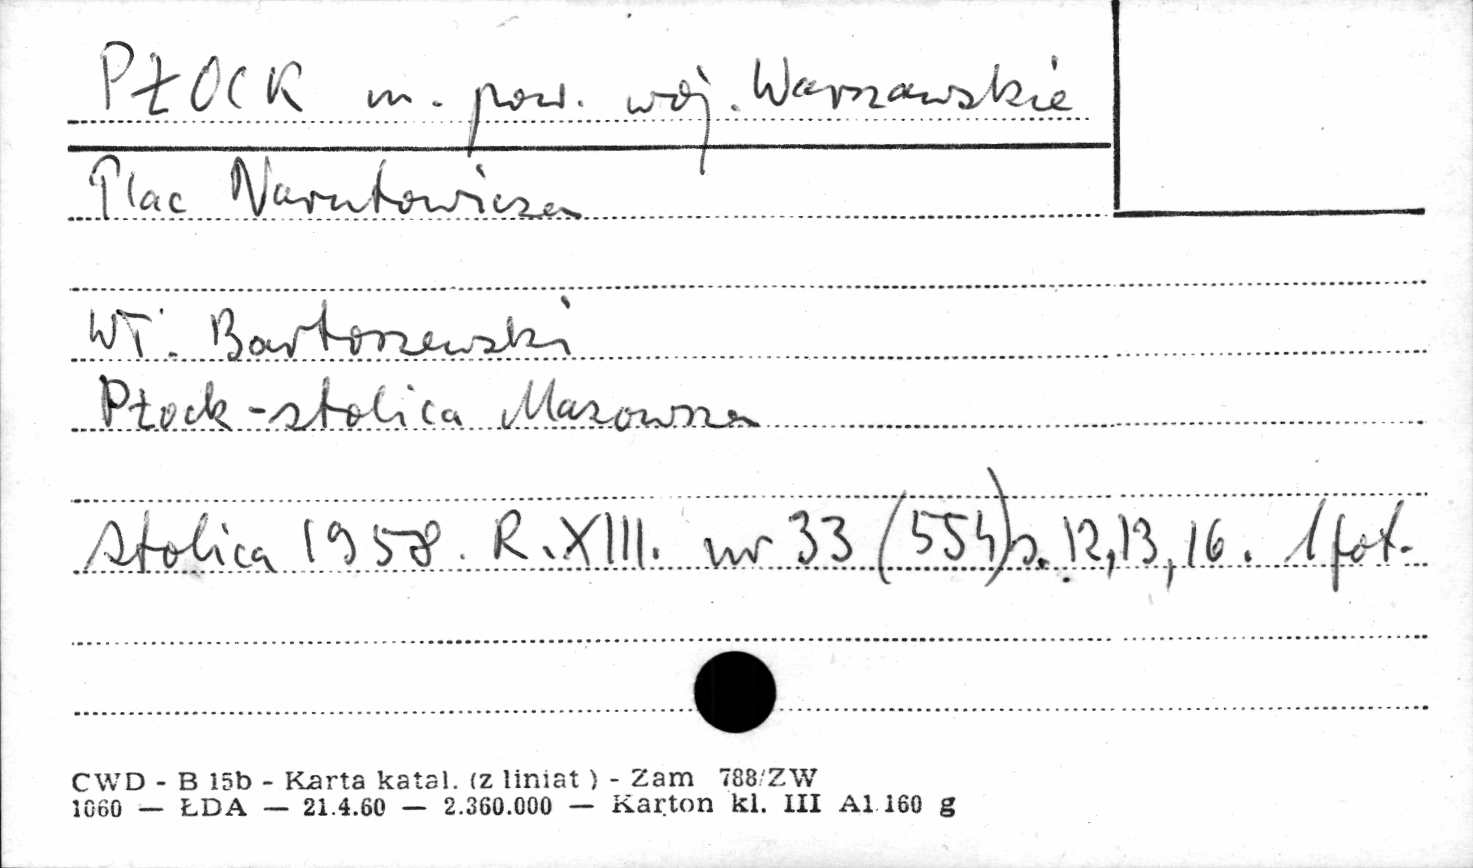 PŁOCK m. pow. woj. Warszawskie
Plac Narutowicza
Wł. Bartoszewski
Płock - stolica Mazowsza
Stolica 1958. R. XIII. nr 33 (554) s. 12, 13, 16. 1 fot.
CWD - B 15b - Karta katal. (z liniat ) - Zam 788/ZW
1060 — ŁDA — 21.4.60 — 2.360.000 — Karton kl. III A1 160 g